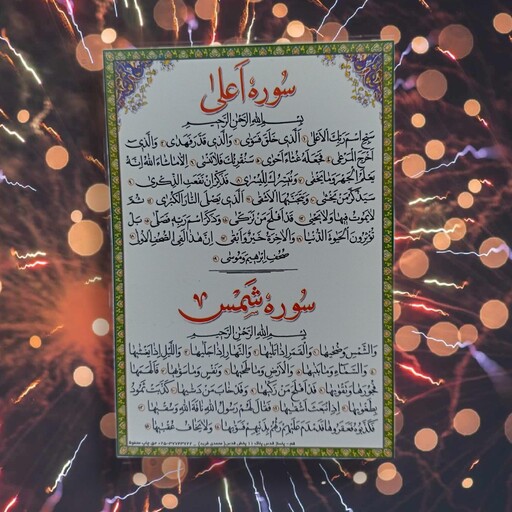 سُورَه اَعلیٰ
بِسْمِ اللهِ الرَّحْمٰنِ الرَّحِیمِ
سَبِّحِ اسْمَ رَبِّكَ الْاَعْلَىٰ الَّذِي خَلَقَ فَسَوّٰى وَالَّذِي قَدَّرَ فَهَدٰى وَالَّذِي
اَخْرَجَ الْمَرْعٰى فَجَعَلَهُ غُثَاءً اَحْوٰى سَنُقْرِئُكَ فَلَا تَنْسٰى اِلَّا مَا شَاءَ اللهُ اِنَّهُ
يَعْلَمُ الْجَهْرَ وَمَا يَخْفٰى وَنُيَسِّرُكَ لِلْيُسْرٰى فَذَكِّرْ اِنْ نَفَعَتِ الذِّكْرٰى
سَيَذَّكَّرُ مَنْ يَخْشٰى وَيَتَجَنَّبُهَا الْاَشْقٰى الَّذِي يَصْلَى النَّارَ الْكُبْرٰى ثُمَّ
لَا يَمُوتُ فِيهَا وَلَا يَحْيٰى قَدْ اَفْلَحَ مَنْ تَزَكّٰى وَذَكَرَ اسْمَ رَبِّهِ فَصَلّٰى بَلْ
تُؤْثِرُونَ الْحَيٰوةَ الدُّنْيَا وَالْاٰخِرَةُ خَيْرٌ وَاَبْقٰى اِنَّ هٰذَا لَفِي الصُّحُفِ الْاُولٰى
صُحُفِ اِبْرٰهِيمَ وَمُوسٰى
سُورَه شَمْس
بِسْمِ اللهِ الرَّحْمٰنِ الرَّحِیمِ
وَالشَّمْسِ وَضُحٰيهَا وَالْقَمَرِ اِذَا تَلٰيهَا وَالنَّهَارِ اِذَا جَلّٰيهَا وَاللَّيْلِ اِذَا يَغْشٰيهَا
وَالسَّمَاءِ وَمَا بَنٰيهَا وَالْاَرْضِ وَمَا طَحٰيهَا وَنَفْسٍ وَمَا سَوّٰيهَا فَاَلْهَمَهَا
فُجُورَهَا وَتَقْوٰيهَا قَدْ اَفْلَحَ مَنْ زَكّٰيهَا وَقَدْ خَابَ مَنْ دَسّٰيهَا كَذَّبَتْ ثَمُودُ
بِطَغْوٰيهَا اِذِ انْبَعَثَ اَشْقٰيهَا فَقَالَ لَهُمْ رَسُولُ اللهِ نَاقَةَ اللهِ وَسُقْيٰهَا
فَكَذَّبُوهُ فَعَقَرُوهَا فَدَمْدَمَ عَلَيْهِمْ رَبُّهُمْ بِذَنْبِهِمْ فَسَوّٰيهَا وَلَا يَخَافُ عُقْبٰيهَا